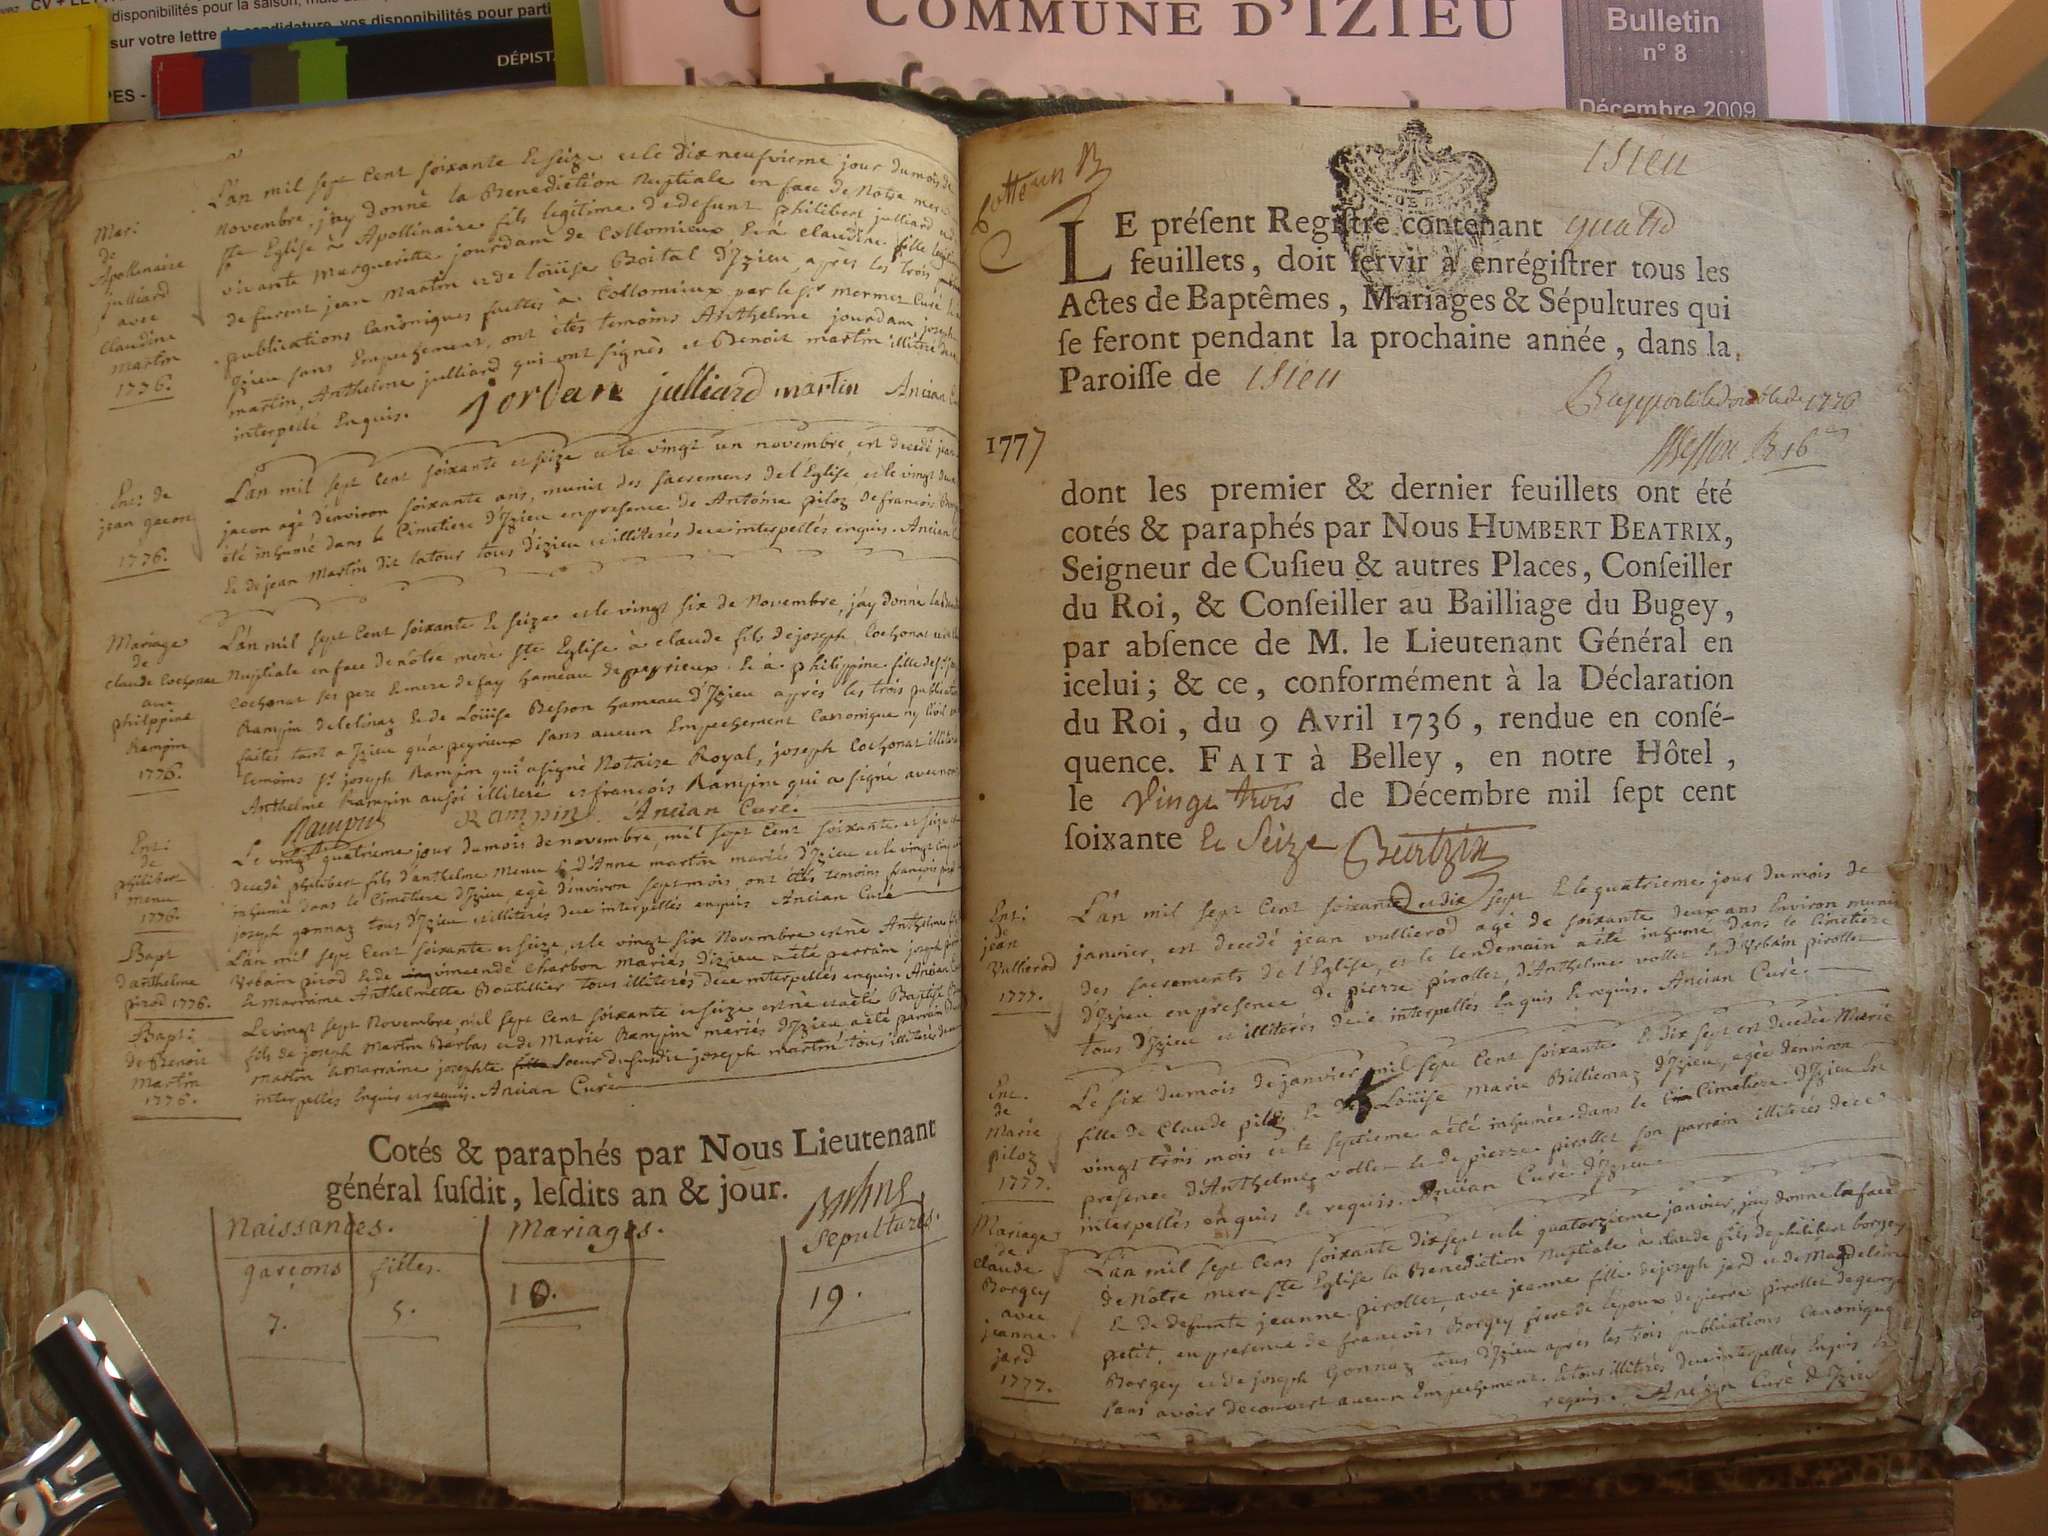 disponibilités pour la saison
sur votre lettre de candidature, vos disponibilités pour parti
DÉPISTA
PES -
COMMUNE D'IZIEU
Bulletin
n° 8
Décembre 2009
Mar:
de
Apollinaire
julliard
avec
claudine
martin
1776.
L'an mil sept Cent soixante & seize et le dix neufvieme jour du mois de
novembre, j'ay donné la Benediction Nuptiale en face de Notre mere
ste Eglise à Apollinaire fils legitime de defunt philibert julliard
vivante marguerite jourdam de Collomieux & à Claudine fille
defunt jean martin et de Loüise Boital d'Izieu, apres les trois
publications Canoniques faittes à Collomieux par le sr mermet Curé
Izieu sans Empechement, ont étés temoins Anthelme jourdam, joseph
martin, Anthelme julliard qui ont signés et Benoit martin illiteré
interpellé Enquis. jordan julliard martin Ancian
Ent: de
jean jacon
1776.
L'an mil sept Cent soixante et seize et le vingt un novembre, est decedé jean
jacon agé d'environ soixante ans, munit des sacremens de l'Eglise et le vingt
été inhumé dans le Cimetiere d'Izieu en presence de Antoine piloz de françois
& de jean Martin dit latour tous d'izieu et illiterés de ce interpellés enquis. Ancian
Mariage
de
Claude Cochonat
avec
philippine
Rampin
1776.
L'an mil sept Cent soixante & seize et le vingt six de Novembre, j'ay donné la
Nuptiale en face de notre mere ste Eglise à claude fils de joseph Cochonat
Cochonat ses pere & mere de fay hameau de peyrieux & à philippine fille de
Rampin de & de Loüise Besson hameau d'Izieu après les trois
faites tant a Izieu qu'a peyrieux sans aucun Empechement Canonique ny Civil
temoins sr joseph Rampin qui a signé Notaire Royal, joseph Cochonat
Anthelme Rampin aussi illiteré et françois Rampin qui a signé avec
Rampin Rampin. Ancian Curé.
Ent:
de
philibert
menu
1776.
Le vingt quatrieme jour du mois de novembre, mil sept Cent soixante et seize
decedé philibert fils d'anthelme menu & d'Anne martin mariés d'Izieu et le vingt
inhumé dans le Cimetiere d'Izieu agé d'environ sept mois, ont étés temoins françois
joseph gonnaz tous d'Izieu et illiterés de ce interpellés enquis Ancian Curé
Bapt
d'anthelme
pirod 1776.
L'an mil sept Cent soixante et seize, et le vingt six Novembre est né Anthelme
Urbain pirod & de vincende Charbon mariés d'izieu a été parrain joseph
& marraine Anthelmette Boutillier tous illiterés de ce interpellés enquis. Ancian
Bapt:
de Benoit
Martin
1776.
Le vingt sept Novembre, mil sept Cent soixante et seize est né et a été Baptisé
fils de joseph Martin Barbas et de Marie Rampin mariés d'Izieu a été parrain
Martin & marraine josephte soeur du susdit joseph martin tous illiterés
interpellés Enquis et requis. Ancian Curé
Cotés & paraphés par Nous Lieutenant
général susdit, lesdits an & jour.
Naissances. Mariages. Sepultures.
garçons filles.
7. 5. 10. 19.
Isieu
LE présent Registre contenant quatre
feuillets, doit servir à enrégistrer tous les
Actes de Baptêmes, Mariages & Sépultures qui
se feront pendant la prochaine année, dans la
Paroisse de Isieu
1776
1777
dont les premier & dernier feuillets ont été
cotés & paraphés par Nous HUMBERT BEATRIX,
Seigneur de Cusieu & autres Places, Conseiller
du Roi, & Conseiller au Bailliage du Bugey,
par absence de M. le Lieutenant Général en
icelui; & ce, conformément à la Déclaration
du Roi, du 9 Avril 1736, rendue en consé-
quence. FAIT à Belley, en notre Hôtel,
le vingt trois de Décembre mil sept cent
soixante & seize Beatrix
Ent:
de
jean
Vullierod
1777.
L'an mil sept Cent soixante et dix sept & le quatrieme jour du mois de
janvier, est decedé jean vullierod agé de soixante deux ans Environ munit
des sacrements de l'Eglise, et le lendemain a été inhumé dans le Cimetiére
d'Izieu en presence de pierre pirollet, d'Anthelme vollet & d'Urbain pirollet
tous d'Izieu et illiterés de ce interpellés Enquis & requis. Ancian Curé.
Ent.
de
Marie
piloz
1777.
Le six du mois de janvier mil sept Cent soixante & dix sept est decedée Marie
fille de Claude piloz & de Loüise Marie Billiemaz d'Izieu, agée d'environ
vingt trois mois et le septieme a été inhumée dans le Cimetiere d'Izieu en
presence d'Anthelme vollet & de pierre pirollet son parrain illiterés de ce
interpellés enquis & requis. Ancian Curé d'Izieu
Mariage
de
Claude
Borgey
avec
jeanne
jard
1777.
L'an mil sept Cens soixante dix sept et le quatorzieme janvier, j'ay donné en face
de Nôtre mere ste Eglise la Benediction Nuptiale à claude fils de philibert borgey
& de defunte jeanne pirollet, avec jeanne fille de joseph jard et de Magdeleine
petit, en presence de françois Borgey frere de l'epoux, de pierre pirollet de george
Borgey et de joseph Gonnaz tous d'Izieu apres les trois publications Canoniques
sans avoir decouvert aucun Empechement & tous illiterés de ce interpellés Enquis &
requis. Ancian Curé d'Izieu